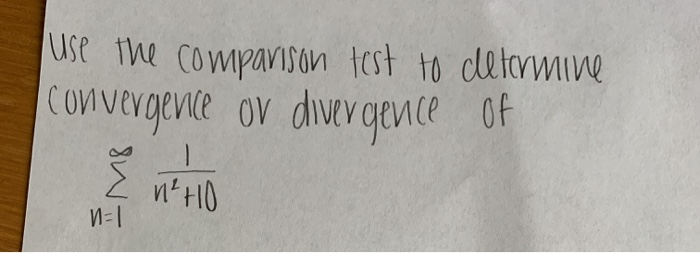 use the comparison test to determine
convergence or divergence of
∞
Σ 1/(n²+10)
n=1